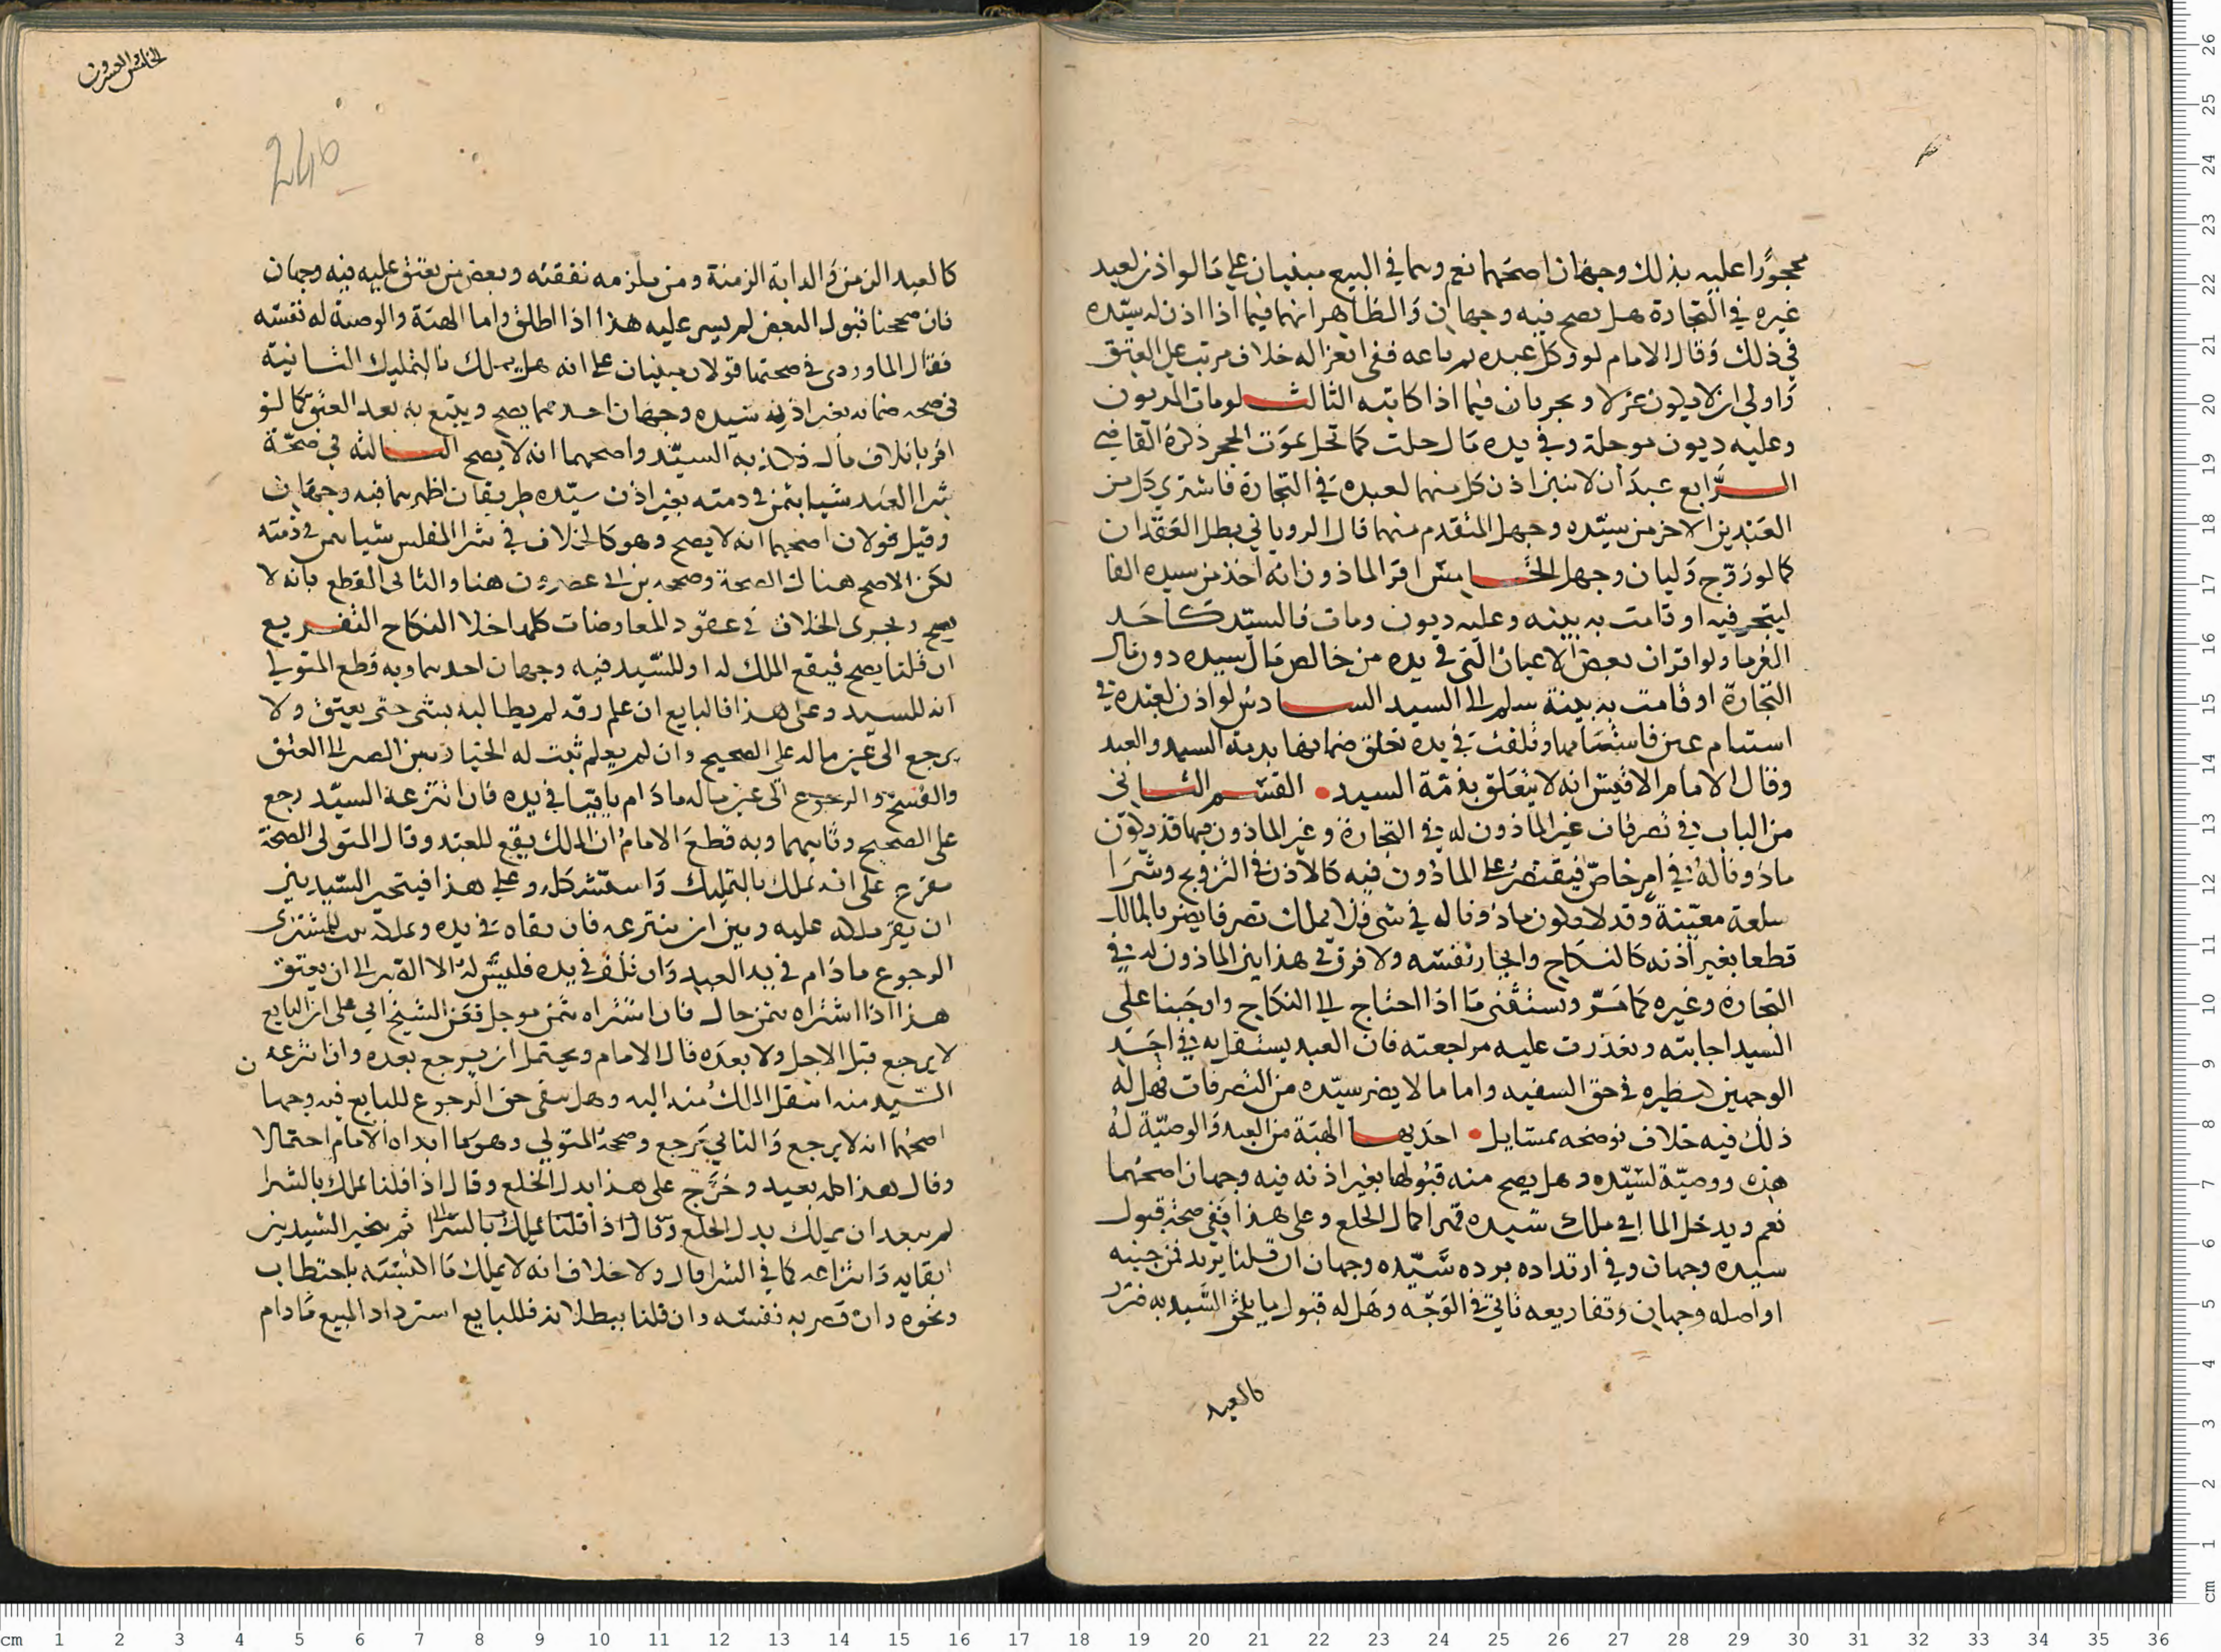 محجورا عليه بذلك وجهان اصحهما نعم وهما في البيع مبنيان على ما لو اذن لعبد
غيره في التجارة هل يصح فيه وجهان والظاهر انهما فيما اذا اذن له سيده
في ذلك وقال الامام لو وكل عبده ثم باعه ففي انعزاله خلاف مرتب على العتق
واولى ان لا يكون عزلا ويجريان فيما اذا كاتبه الثالث لو مات المديون
وعليه ديون موجلة وفي يده مال حلت كما تحل بموت الحر ذكره القاضي
الرابع عبدان لاثنين اذن كل منهما لعبده في التجارة فاشترى كل من
العبدين الاخر من سيده وجهل المتقدم منهما قال الروياني بطل العقدان
كما لو زوج وليان وجهل الخامس اقر الماذون انه اخذ من سيده الفا
ليتجر فيه او قامت به بينه وعليه ديون ومات فالسيد كاحد
الغرما ولو اقر ان بعض الاعيان التي في يده من خالص مال سيده دون مال
التجارة او قامت به بينة سلم الى السيد السادس لو اذن لعبده في
استيام عين فاستامها وتلفت في يده تعلق ضمانها بذمة السيد والعبد
وقال الامام الاقيس انه لا يتعلق بذمة السيد • القسم الثاني
من الباب في تصرفات غير الماذون له في التجارة وغير الماذون فيها قد يكون
ماذونا له في امر خاص فيقتصر على الماذون فيه كالاذن في التزويج وشرا
سلعة معينة وقد لا يكون ماذونا له في شي فلا يملك تصرفا يضر بالمالك
قطعا بغير اذنه كالنكاح وايجار نفسه ولا فرق في هذا بين الماذون له في
التجارة وغيره كما مر ويستثنى ما اذا احتاج الى النكاح واوجبنا على
السيد اجابته وتعذرت عليه مراجعته فان العبد يستقل به في احد
الوجهين كنظيره في حق السفيه واما ما لا يضر سيده من التصرفات فهل له
ذلك فيه خلاف نوضحه بمسايل • احديها الهبة من العبد والوصية له
هبة ووصية لسيده وهل يصح منه قبولها بغير اذنه فيه وجهان اصحهما
نعم ويدخل المال في ملك سيده قهرا كمال الخلع وعلى هذا ففي صحة قبول
سيده وجهان وفي ارتداده برده سيده وجهان ان قلنا يرتد فمن حينه
او اصله وجهان وتفاريعه تاتي في الوجه وهل له قبول ما يلحق السيد به ضرر
كالعبد
الخامس والعشرون
246
كالعبد الزمن والدابة الزمنة ومن يلزمه نفقته وبعض من يعتق عليه فيه وجهان
فان صححنا قبول البعض لم يسر عليه هذا اذا اطلق واما الهبة والوصية له نفسه
فقال الماوردي في صحتها قولان مبنيان على انه هل يملك بالتمليك الثانية
في صحة ضمانه بغير اذن سيده وجهان احدهما يصح ويتبع به بعد العتق كما لو
اقر باتلاف مال فكذبه السيد واصحهما انه لا يصح الثالثه في صحة
شرا العبد شيا بثمن في ذمته بغير اذن سيده طريقان اظهرهما فيه وجهان
وقيل قولان اصحهما انه لا يصح وهو كالخلاف في شرا المفلس شيا بثمن في ذمته
لكن الاصح هناك الصحة وصححه بن ابي عصرون هنا والثاني القطع بانه لا
يصح ويجري الخلاف في عقود المعاوضات كلها خلا النكاح التفريع
ان قلنا يصح فيقع الملك له او للسيد فيه وجهان احدهما وبه قطع المتولي
انه للسيد وعلى هذا فالبايع ان علم رقه لم يطالبه بشي حتى يعتق ولا
يرجع الى عين ماله على الصحيح وان لم يعلم ثبت له الخيار بين الصبر الى العتق
والفسخ والرجوع الى عين ماله ما دام باقيا في يده فان انتزعه السيد رجع
على الصحيح وثانيهما وبه قطع الامام ان الملك يقع للعبد وقال المتولي الصحة
مفرع على انه يملك بالتمليك واستشكله وعلى هذا فيتخير السيد بين
ان يقر ملكه عليه وبين ان ينتزعه فان بقاه في يده وعلاه للمشتري
الرجوع ما دام في يد العبد وان تلف في يده فليس له الا الصبر الى ان يعتق
هذا اذا اشتراه بثمن حال فان اشتراه بثمن موجل فعن الشيخ ابي على ان البايع
لا يرجع قبل الاجل ولا بعده قال الامام ويحتمل ان يرجع بعده وان انتزعه
السيد منه انتقل الملك منه اليه وهل يبقى حق الرجوع للبايع فيه وجهان
اصحهما انه لا يرجع والثاني يرجع وصححه المتولي وهو ما ابداه الامام احتمالا
وقال هذا كله بعيد وخرج على هذا بدل الخلع وقال اذا قلنا يملك بالشرا
لم يبعد ان يملك بدل الخلع وقال اذا قلنا يملك بالشرا ثم يتخير السيد بين
ابقايه وانتزاعه كما في الشرا قال ولا خلاف انه لا يملك ما اكتسبه باحتطاب
ونحوه وان قصر به نفسه وان قلنا ببطلانه فللبايع استرداد المبيع ما دام